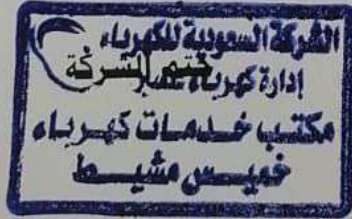 الشركة السعودية للكهرباء
إدارة كهرباء عسير
ختم الشركة
مكتب خدمات كهرباء
خميس مشيط